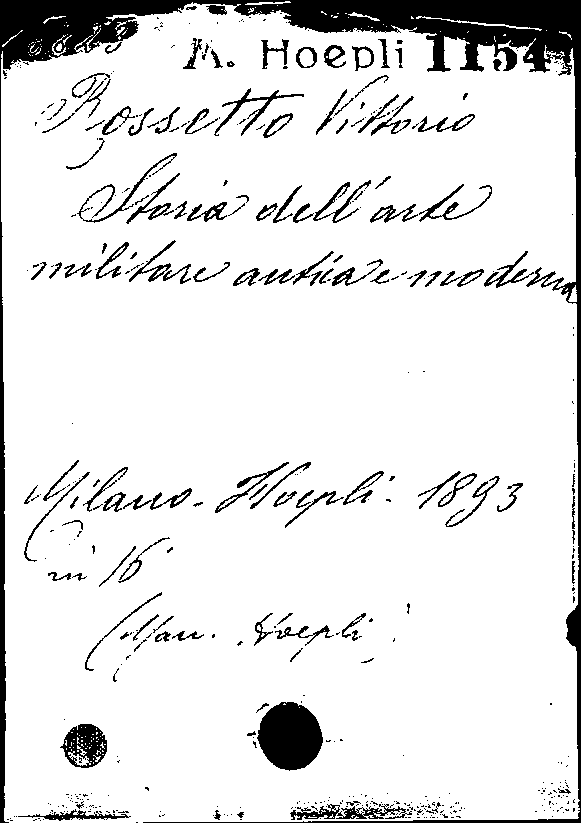 M. Hoepli 1154
Rossetto Vittorio
Storia dell'arte
militare antica e moderna
Milano - Hoepli - 1893
in 16°
(Man. Hoepli)